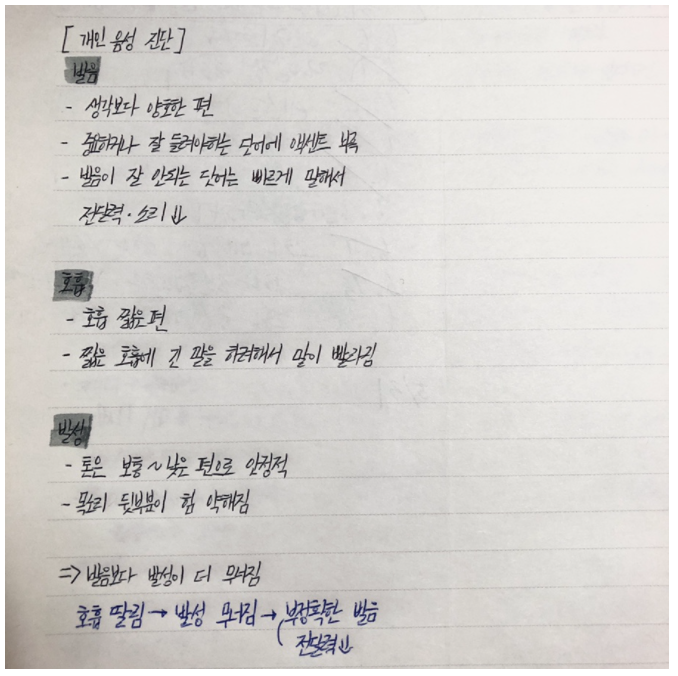 [개인 음성 진단]
발음
- 생각보다 양호한 편
- 중요하거나 잘 들려야하는 단어에 액센트 부족
- 발음이 잘 안되는 단어는 빠르게 말해서
전달력·소리↓
호흡
- 호흡 짧은편
- 짧은 호흡에 긴 말을 하려해서 말이 빨라짐
발성
- 톤은 보통~낮은 편으로 안정적
- 목소리 뒷부분이 힘 약해짐
=> 발음보다 발성이 더 무너짐
호흡 딸림 → 발성 무너짐 → 부정확한 발음
전달력↓